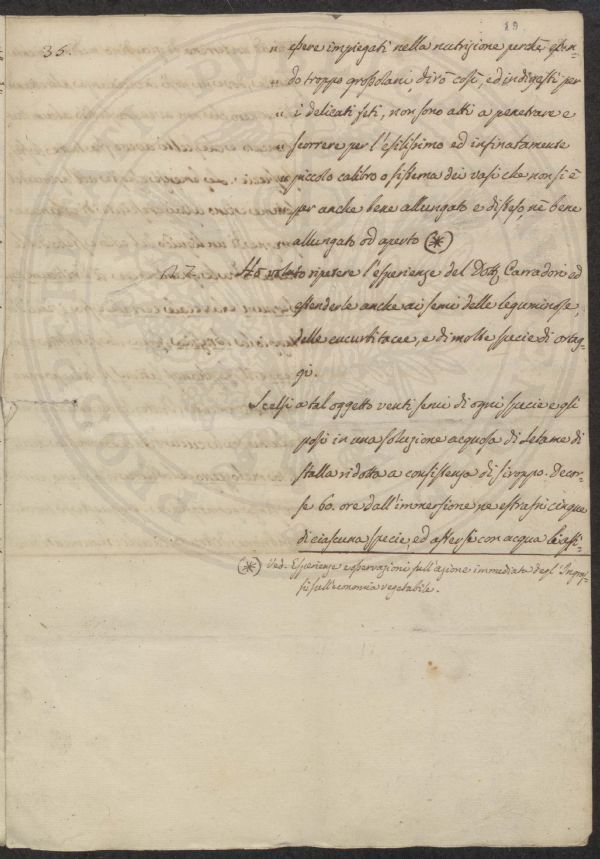 19
35.
„ essere impiegati nella nutrizione perchè essen-
„ do troppo grossolani, dirò così, ed indigesti per
„ i delicati feti, non sono atti a penetrare e
„ scorrere per l'esilissimo ed infinatamente
„ piccolo calibro o sistema dei vasi che non si è
„ per anche bene allungato e disteso nè bene
allungato od aperto (*)
Ho voluto ripetere l'esperienze del Dott. Carradori ed
estenderle anche ai semi delle leguminose,
delle cucurbitacee, e di molte specie di ortag-
gi.
Scelsi a tal oggetto venti semi di ogni specie e gli
posi in una soluzione acquosa di letame di
stalla ridotta a consistenza di siroppo. Decor-
se 60. ore dall'immersione ne estrassi cinque
di ciascuna specie, ed astersi con acqua
(*) Ved. Esperienze e osservazioni sull'azione immediata degl' Ingras-
si sull'economia vegetabile.